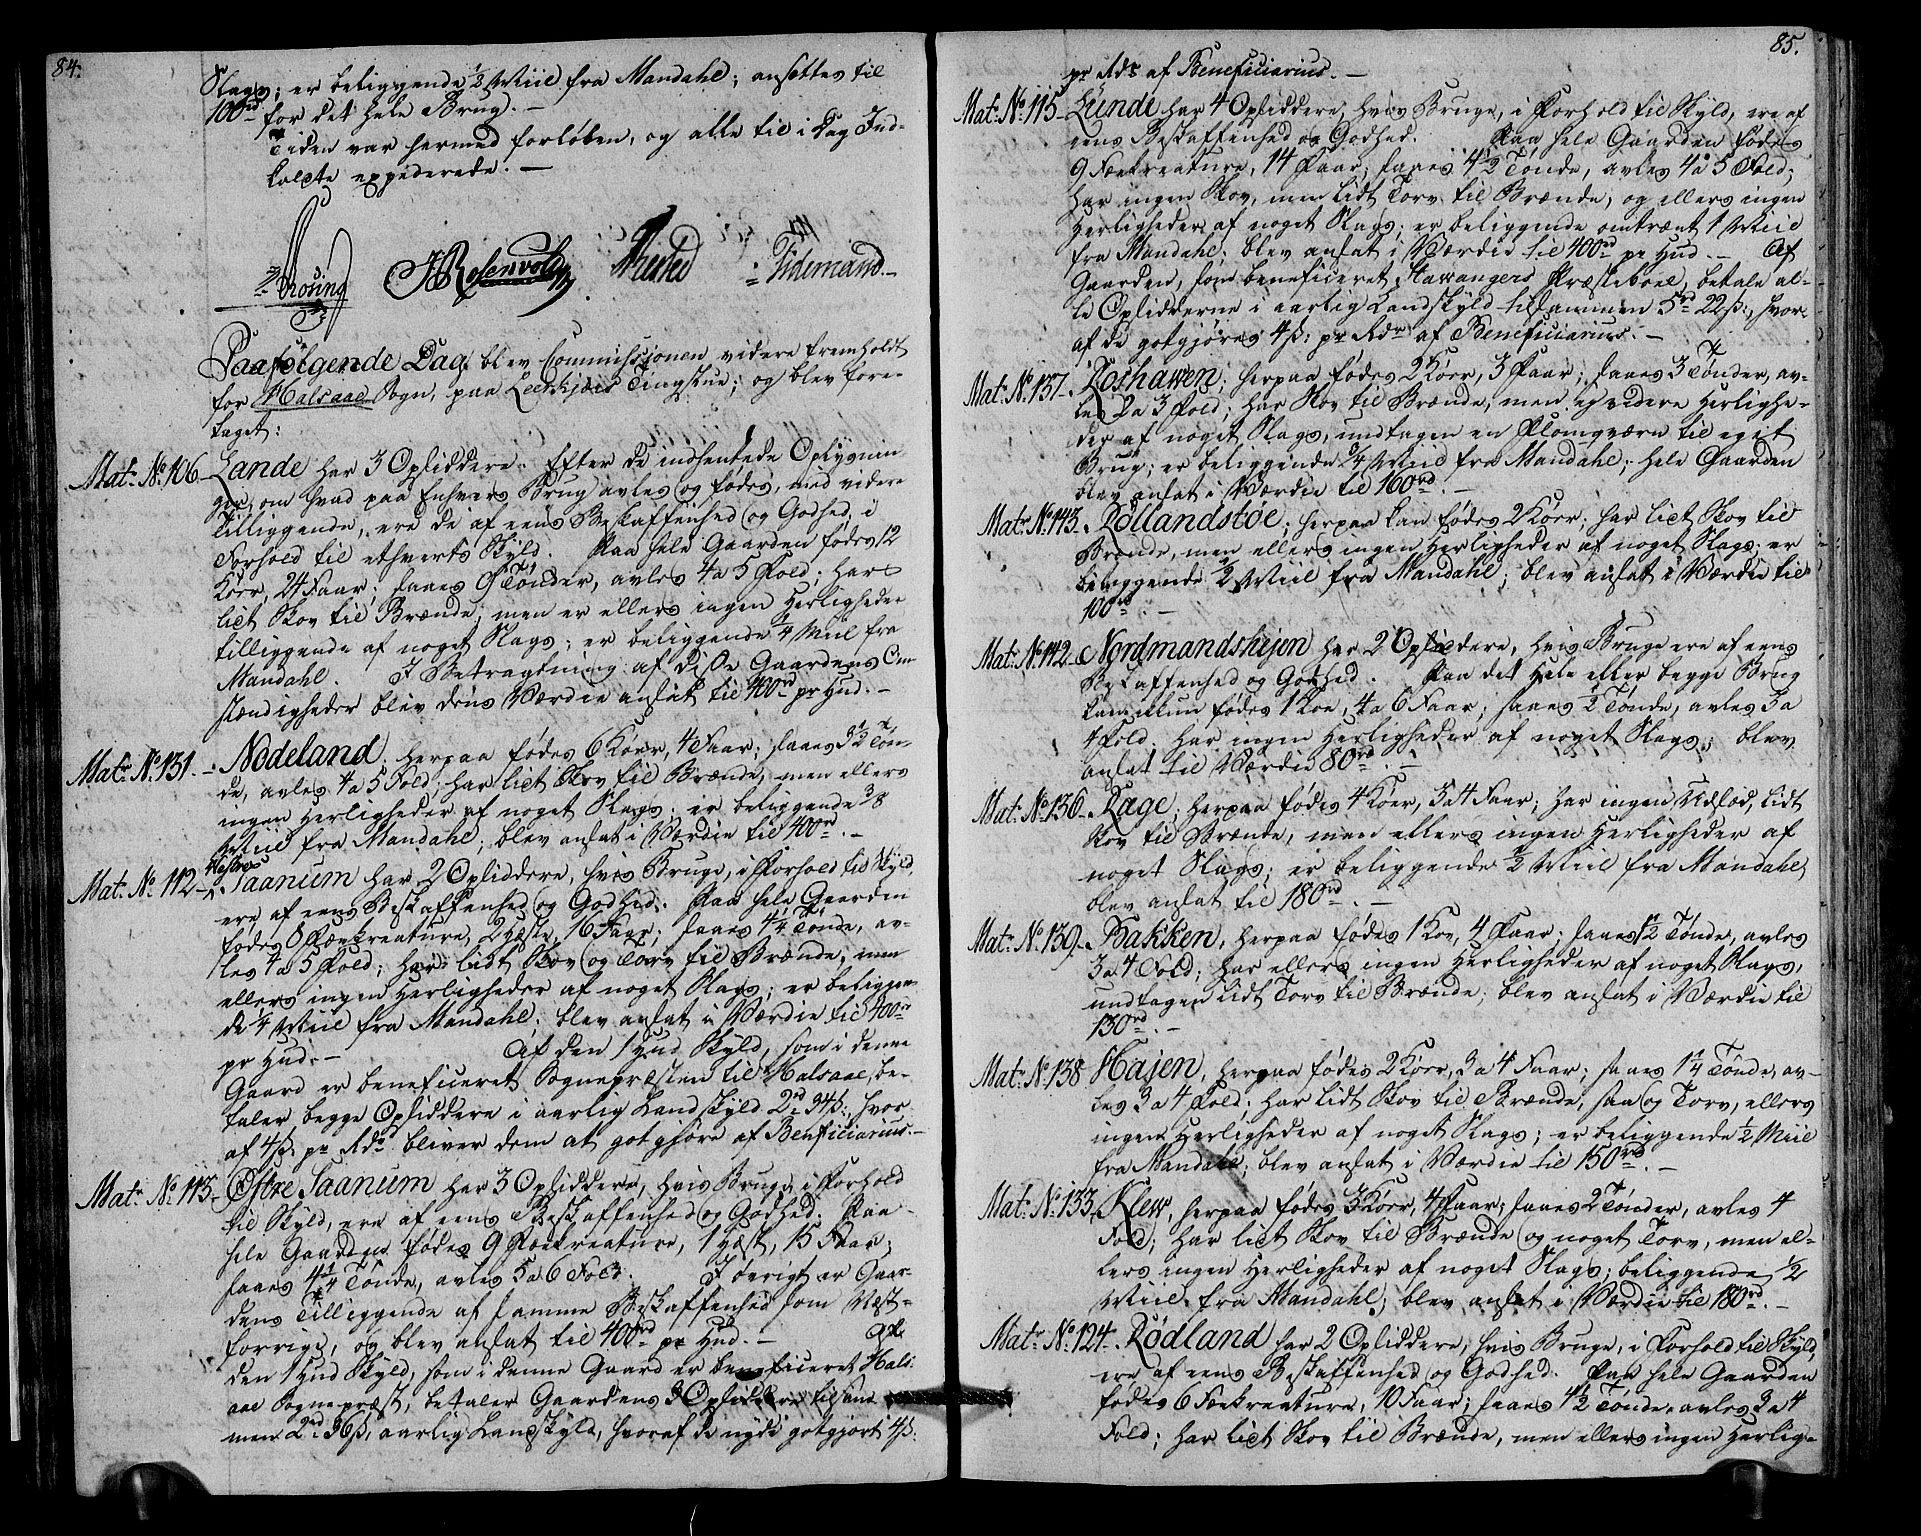 84.
Slags; er beliggende ½ Miil fra Mandahl; ansettes til
100rd for det hele Brug. —
Tiden var hermed forløben, og alle til i Dag Ind-
kalte expederede. —
JBRosenvold
Tidemand. —
Paafølgende Dag blev Commissionen videre fremholdt
for Halsaae Sogn, paa Tingstue; og blev fore-
taget:
Mat. No. 106. Lande har 3 Opsiddere. Efter de indhentede Oplysnin
ger, om hvad paa Enhvers Brug avles og fødes, med videre
Tilliggende, ere de af eens Beskaffenhed og Godhed, i
Forhold til ethverts Skyld. Paa hele Gaarden fødes 12
Kører, 24 Faar; saaes 9 Tønder, avles 4 a 5 Fold; har
lidt Skov til Brænde, men er ellers ingen Herligheder
tilliggende af noget Slags; er beliggende ¼ Miil fra
Mandahl. I Betragtning af disse Gaardens Om
stændigheder blev dens Værdie ansat til 400rd pr Hud. —
Matr. No. 131. — Nodeland, herpaa fødes 6 Kører, 4 Faar; saaes 3½ Tøn-
de, avles 4 a 5 Fold; har lidt Skov til Brænde, men ellers
ingen Herligheder af noget Slags; er beliggende 3/8
Miil fra Mandahl; blev ansat i Værdie til 400rd. —
Vestre
Mat. No. 112 — Saanum har 2 Opsiddere, hvis Bruge, i Forhold til Skyld,
ere af eens Beskaffenhed og Godhed. Paa hele Gaarden
fødes 8 Fækreature, 2 Hæste, 16 Faar; saaes 4¼ Tønde, av-
les 4 a 5 Fold; har lidt Skov og Torv til Brænde, men
ellers ingen Herligheder af noget Slags; er beliggen-
de ¼ Miil fra Mandahl; blev ansat i Værdie til 400rd
pr Hud. — Af den 1 Hud Skyld, som i denne
Gaard er beneficeret Sognepræsten til Halsaae, be-
taler begge Opsiddere i aarlig Landskyld 2rd 34ß:, hvor
af 4ß. pr Rdr bliver dem at gotgjøre af Benficiarius. —
Mat. No. 113. Østre Saanum har 3 Opsiddere, hvis Bruge, i Forhold
til Skyld, ere af eens Beskaffenhed og Godhed. Paa
hele Gaarden fødes 9 Fækreature, 1 Hæst, 15 Faar;
saaes 4¼ Tønde, avles 5 a 6 Fold. I øvrigt er Gaar-
dens Tilliggende af samme Beskaffenhed som Næst-
forrige, og blev ansat til 400rd pr Hud. — Af
den 1 Hud Skyld, som i denne Gaard er beneficeret Hals-
aae Sognepræst, betaler Gaardens 3 Opsiddere tilsam
men 2rd 36ß, aarlig Landskyld, hvoraf de nyde gotgjort 4ß:
85.
pr Rds af Beneficiarius. —
Mat. No. 115 — Lunde har 4 Opsiddere, hvis Bruge, i Forhold til Skyld, ere af
eens Beskaffenhed og Godhed. Paa hele Gaarden fødes
9 Fækreature, 14 Faar; saaes 4½ Tønde, avles 4 a 5 Fold;
har ingen Skov, men lidt Torv til Brænde, og ellers ingen
Herligheder af noget Slags; er beliggende omtrent 1 Miil
fra Mandahl; blev ansat i Værdie til 400rd pr Hud. — Af
Gaarden, som beneficeret Stawangers Præsteboel, betale al-
le Opsidderne i aarlig Landskyld tilsammen 5rd 22ß:, hvor-
af de gotgjøres 4ß: pr Rdr af Beneficiarius. —
Mat. No. 137 — Roshawen; herpaa fødes 2 Kører, 3 Faar; saaes 3 Tønder, av-
les 2 a 3 Fold; har Skov til Brænde, men ej videre Herlighe-
der af noget Slags, undtagen en Flomqværn til eget
Brug; er beliggende ¼ Miil fra Mandahl; hele Gaarden
blev ansat i Værdie til 160rd. —
Matr. No. 143. Røllandstøe; herpaa kan fødes 2 Kører; har lidt Skov til
Brænde, men ellers ingen Herligheder af noget Slags; er
beliggende ½ Miil fra Mandahl; blev ansat i Værdie til
100rd. —
Mat. No. 142 — Nordmandshejen har 2 Opsiddere, hvis Bruge ere af eens
Beskaffenhed og Godhed. Paa det hele eller begge Brug
kan ikkun fødes 1 Koe, 4 a 6 Faar; saaes ½ Tønde, avles 3 a
4 Fold. Har ingen Herligheder af noget Slags; blev
ansat til Værdie 80rd. —
Mat. No. 136 — Rage; herpaa fødes 4 Kører, 3 a 4 Faar; har ingen Udsæd, lidt
Skov til Brænde, men ellers ingen Herligheder af
noget Slags; er beliggende ½ Miil fra Mandahl;
blev ansat til 180rd. —
Mat. No. 139. Bakken, herpaa fødes 1 Koe, 4 Faar; saaes 1½ Tønde, avles
3 a 4 Fold; har ellers ingen Herligheder af noget Slags,
undtagen lidt Torv til Brænde; blev ansat i Værdie til
130rd. —
Mat. No. 138 Haien, herpaa fødes 2 Kører, 3 a 4 Faar; saaes 1¼ Tønde, av-
les 3 a 4 Fold; har lidt Skov til Brænde, saa og Torv, ellers
ingen Herligheder af noget Slags; er beliggende ½ Miil
fra Mandahl; blev ansat i Værdie til 150rd. —
Mat. No. 133, Klew, herpaa fødes 3 Kører, 4 Faar; saaes 2 Tønder, avles 4
Fold; har lidt Skov til Brænde og noget Torv, men el-
lers ingen Herligheder af noget Slags; beliggende ½
Miil fra Mandahl; blev ansat i Værdie til 180rd. —
Matr. No. 124. Rødland har 2 Opsiddere, hvis Bruge, i Forhold til Skyld,
ere af eens Beskaffenhed og Godhed. Paa hele Gaarden
fødes 6 Fækreature, 10 Faar; saaes 4½ Tønde, avles 3 a 4
Fold; har lidt Skov til Brænde, men ellers ingen Herlig-